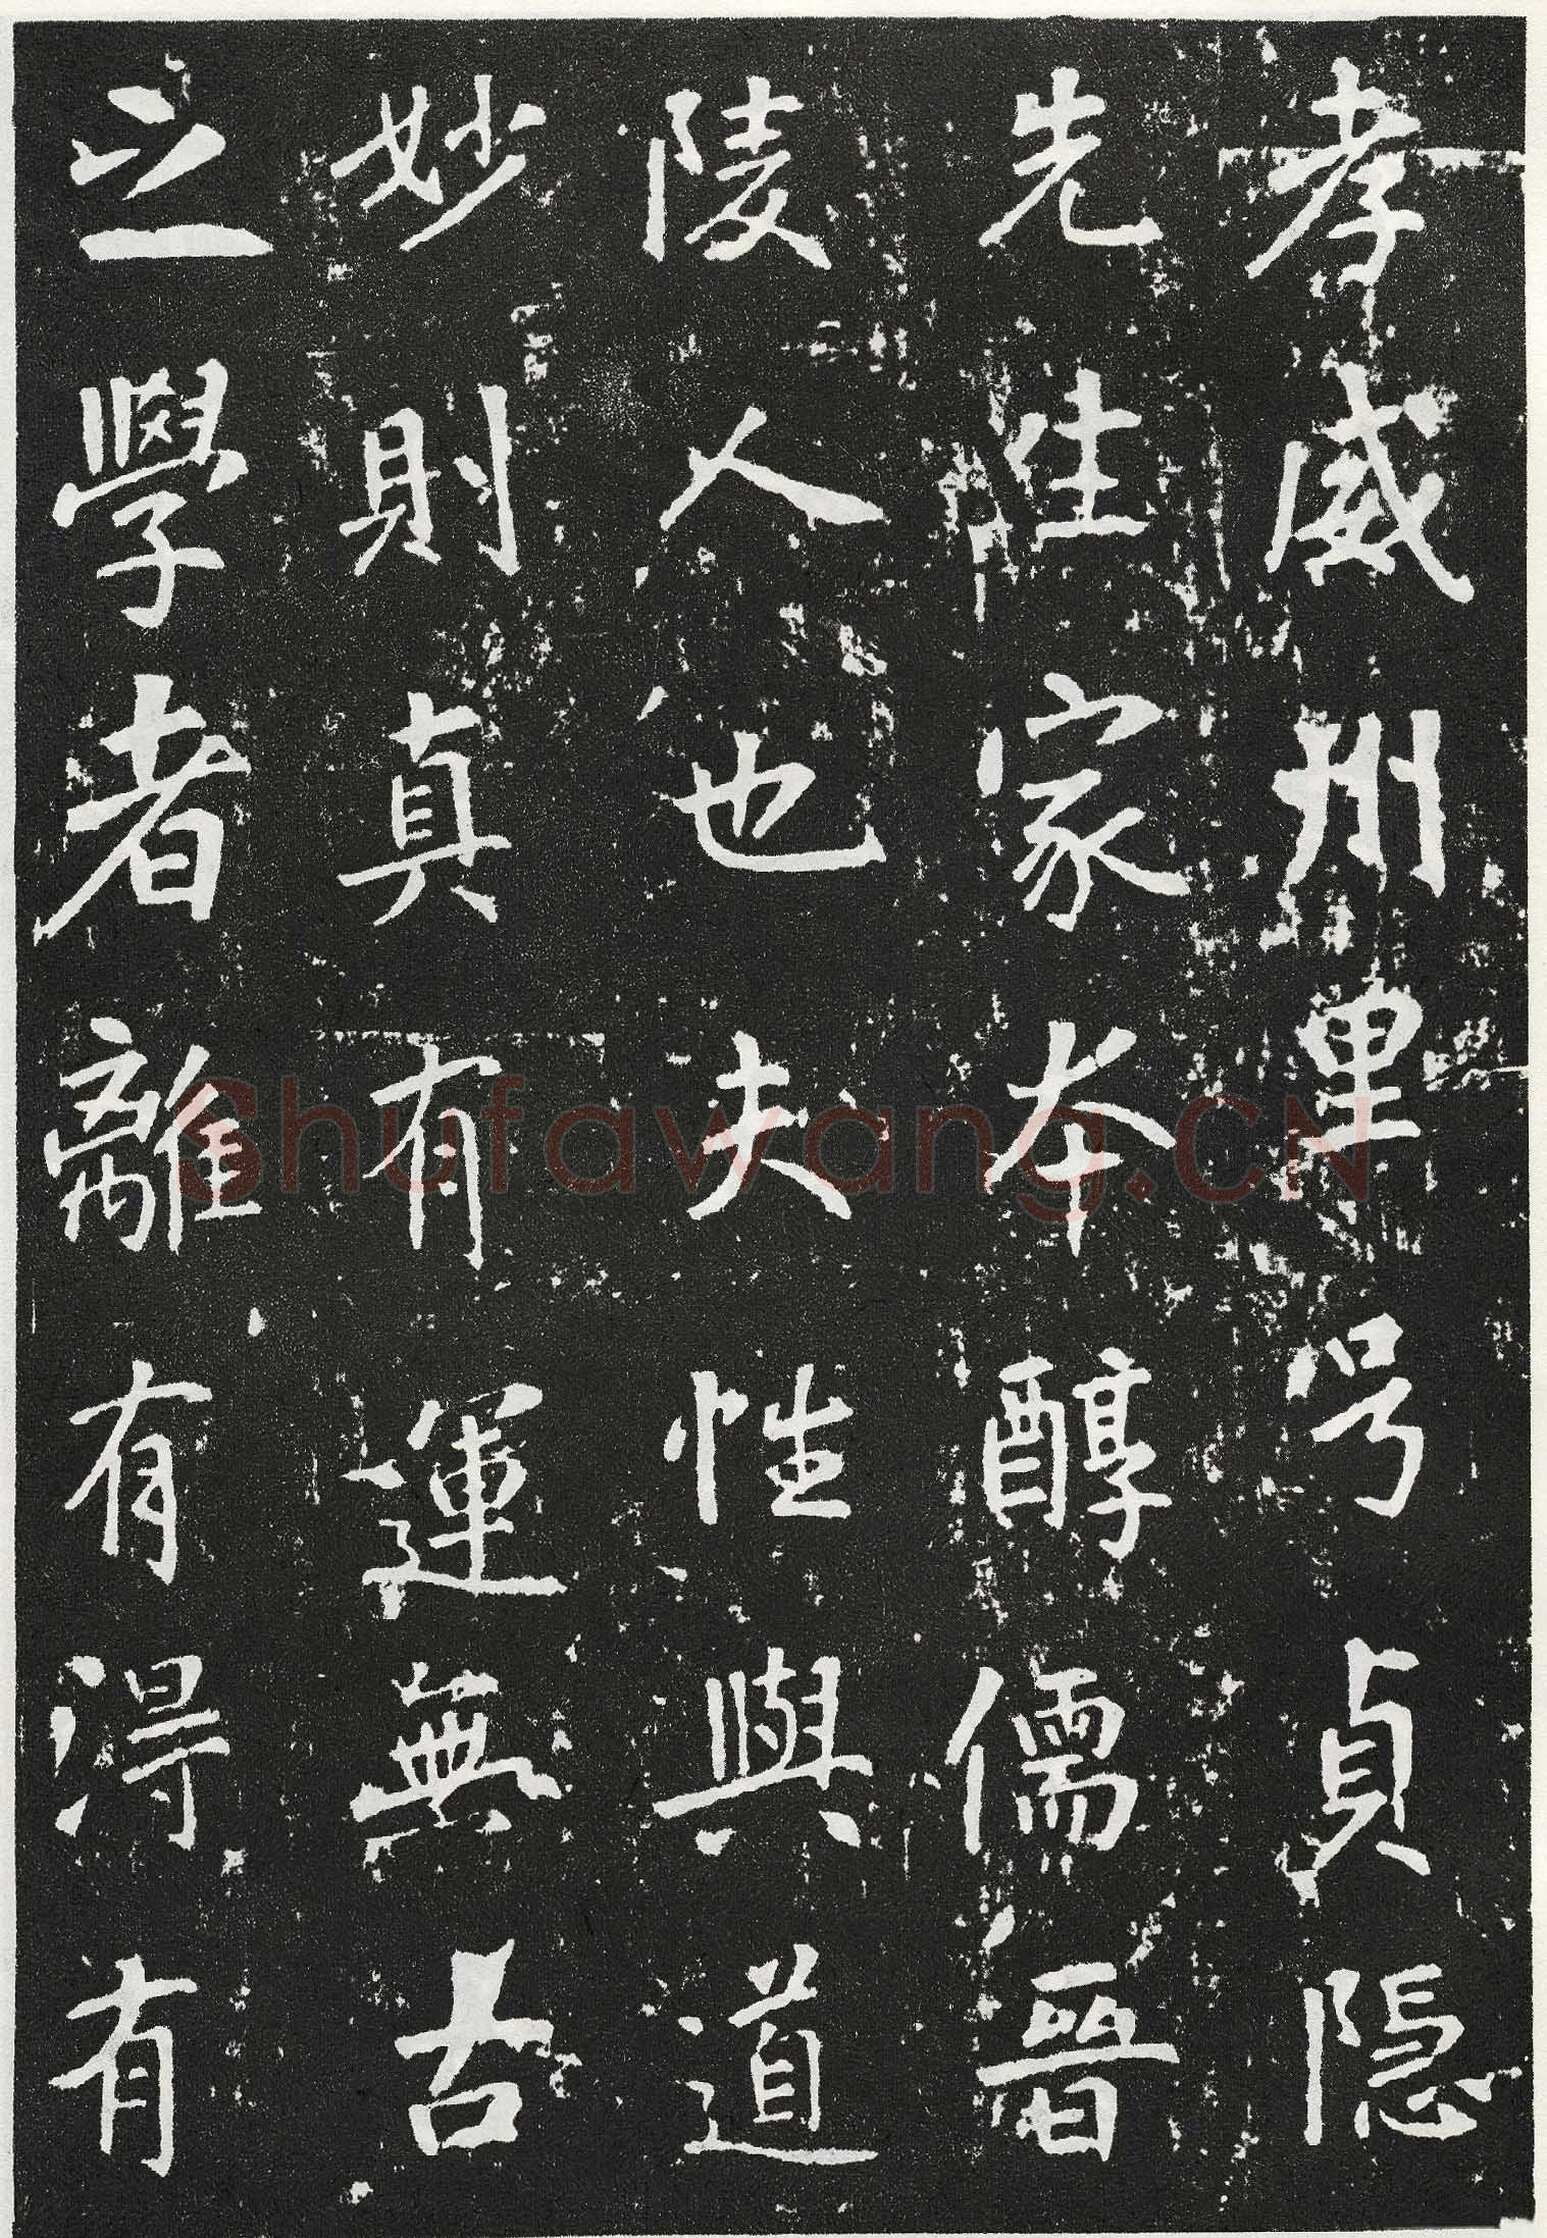 孝威州里号貞隐
先生家本醇儒晉
陵人也夫性與道
妙則真有運無古
之學者離有得有
Shufawang.CN